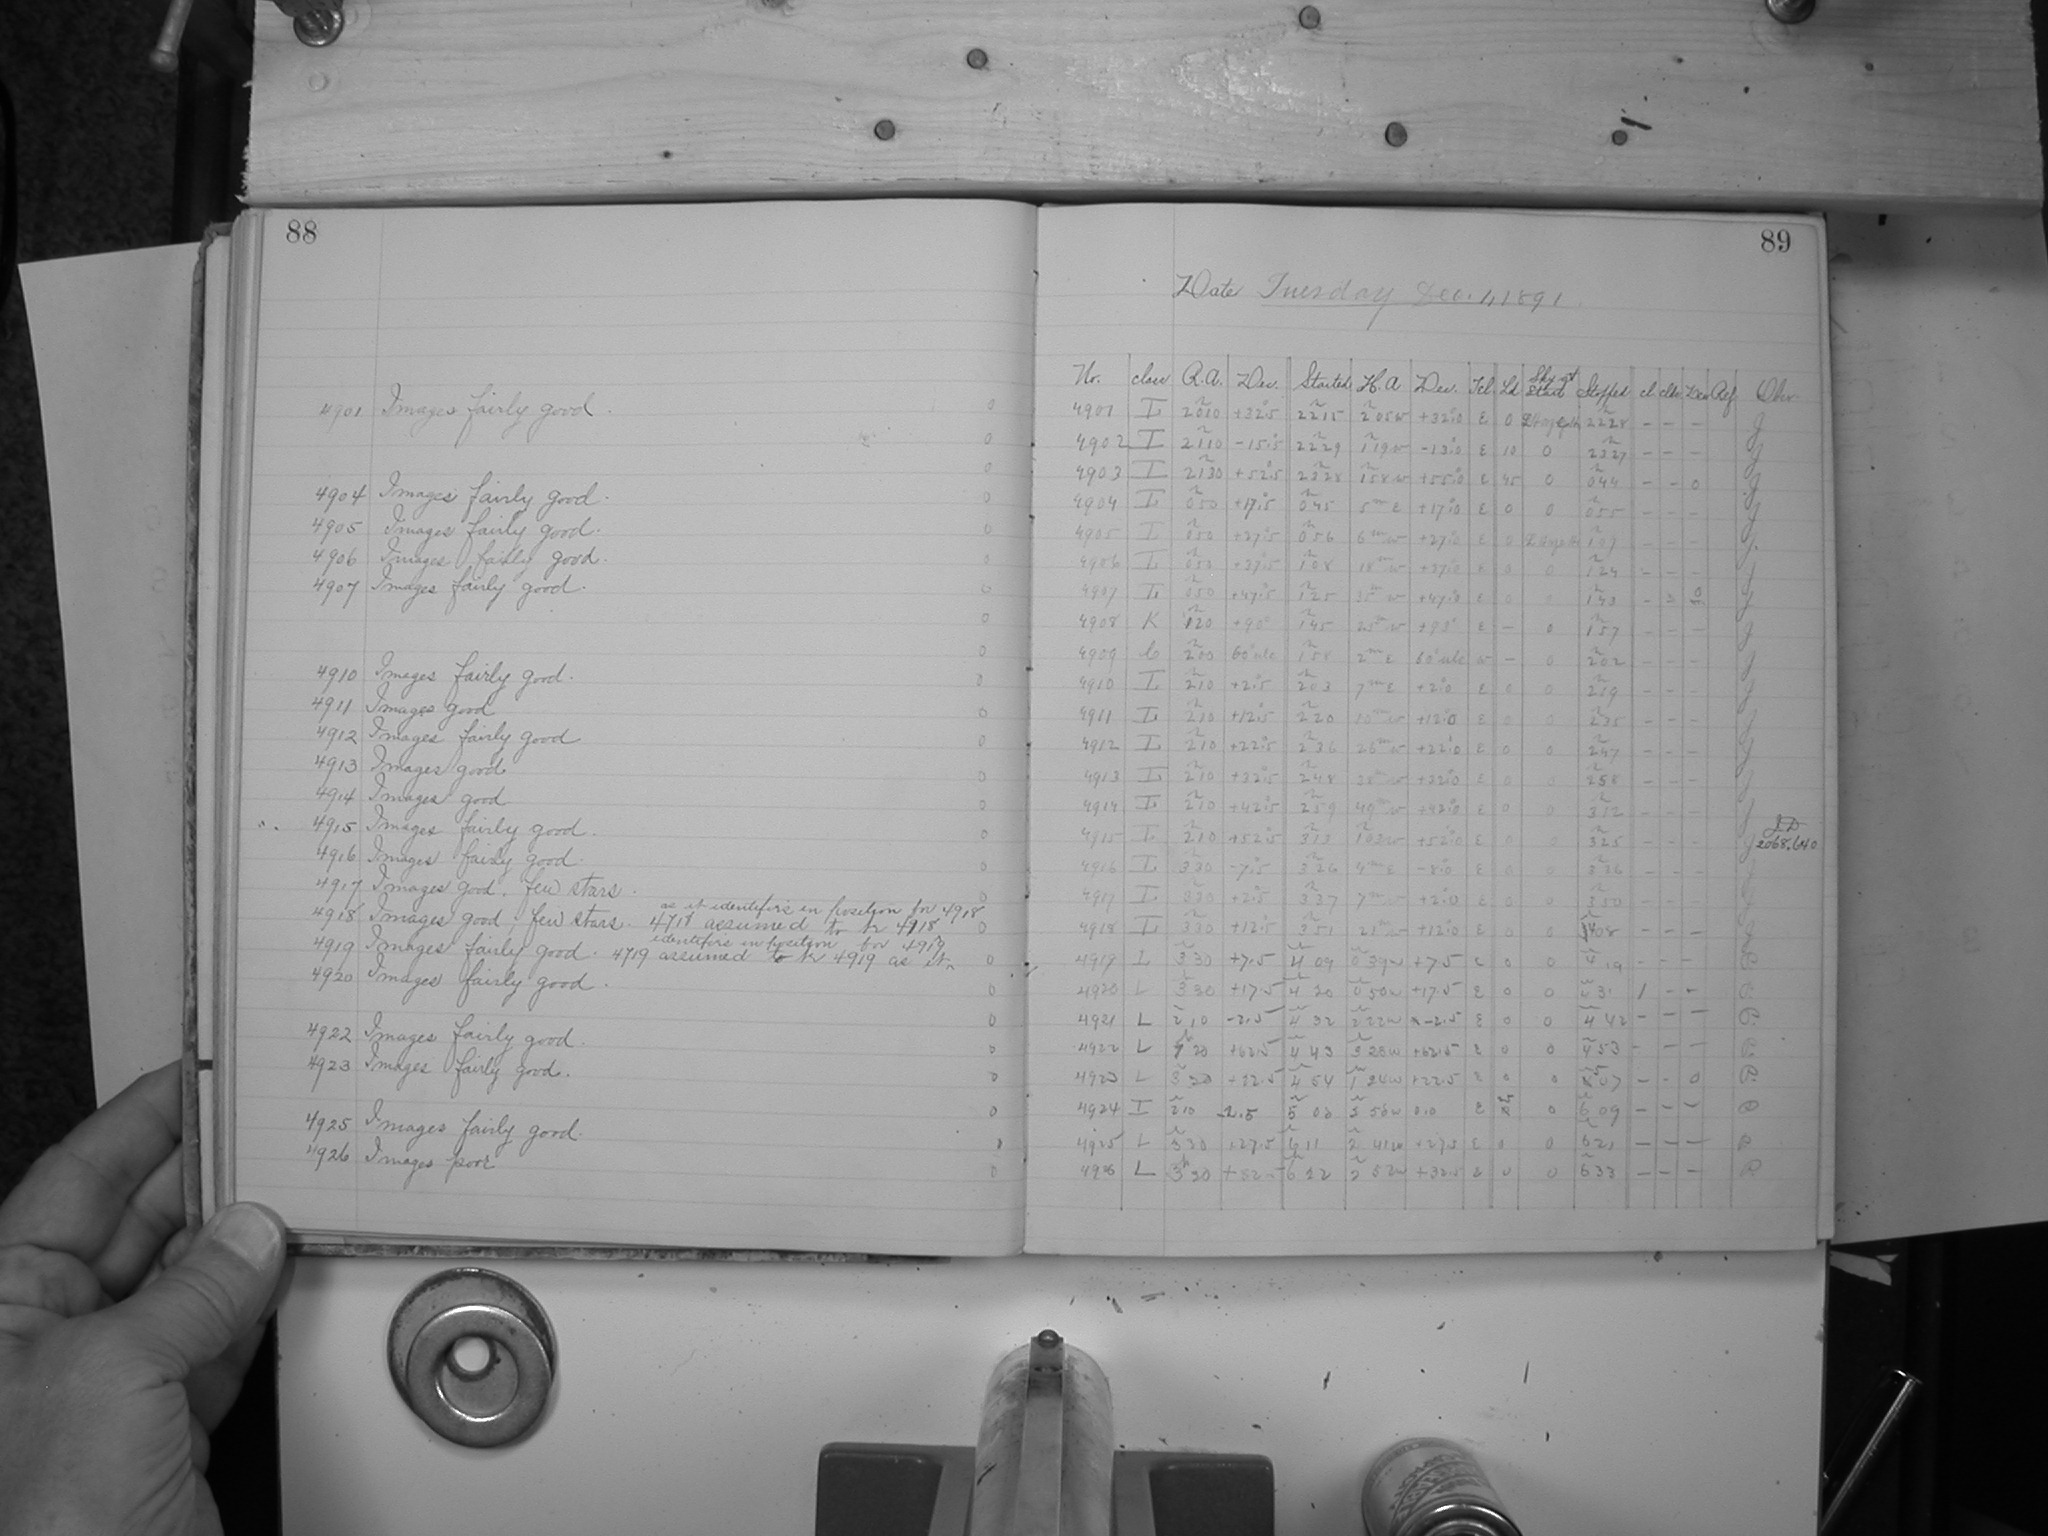 88
4901 Images fairly good.
4904 Images fairly good.
4905 Images fairly good.
4906 Images fairly good.
4907 Images fairly good.
4910 Images fairly good.
4911 Images good
4912 Images fairly good
4913 Images good
4914 Images good
4915 Images fairly good.
4916 Images fairly good.
4917 Images good, few stars.
as it identifies in position for 4918
4918 Images good, few stars. 4718 assumed to be 4918
identifies in position for 4919
4919 Images fairly good. 4719 assumed to be 4919 as it
4920 Images fairly good.
4922 Images fairly good.
4923 Images fairly good.
4925 Images fairly good.
4926 Images poor
89
Date Tuesday Dec. 1, 1891.
No. class R.A. Dec. Started H.A Dec. Ld Sky at Start Stopped cl Ref Obsr
4901 I 20 10 +32.5 22 15 2 05 w +32.0 E 0 22 28 - - - J
4902 I 21 10 -15.5 22 29 1 19 w -13.0 E 10 0 23 27 - - - J
4903 I 21 30 +52.5 23 28 1 58 w +55.0 E 45 0 0 44 - - 0 J
4904 I 0 50 +17.5 0 45 5m E +17.0 E 0 0 0 55 - - - J
4905 I 0 50 +27.5 0 56 6m w +27.0 E 0 1 07 - - - J
4906 I 0 50 +37.5 1 08 18m w +37.0 E 0 0 1 24 - - - J
4907 I 0 50 +47.5 1 25 35m w +47.0 E 0 0 1 43 - J
4908 K 1 20 +90° 1 45 25m w +90° E - 0 1 57 - - - J
4909 C 2 00 60° 1 58 2m E 60° w - 0 2 02 - - - J
4910 I 2 10 +2.5 2 03 7m E +2.0 E 0 0 2 19 - - - J
4911 I 2 10 +12.5 2 20 10m w +12.0 E 0 0 2 35 - - - J
4912 I 2 10 +22.5 2 36 26m w +22.0 E 0 0 2 47 - - - J
4913 I 2 10 +32.5 2 48 38m w +32.0 E 0 0 2 58 - - - J
4914 I 2 10 +42.5 2 59 49m w +42.0 E 0 0 3 12 - - - J
J.D.
4915 I 2 10 +52.5 3 13 1 03 w +52.0 E 0 0 3 25 - - - J 2068.640
4916 I 3 30 -7.5 3 26 4m E -8.0 E 0 0 3 36 - - - J
4917 I 3 30 +2.5 3 37 7m w +2.0 E 0 0 3 50 - - - J
4918 I 3 30 +12.5 3 51 21m w +12.0 E 0 0 4 08 - - - J
4919 L 3 30 +7.5 4 09 0 39 w +7.5 E 0 0 4 19 - - -
4920 L 3 30 +17.5 4 20 0 50 w +17.5 E 0 0 4 31 1 - -
4921 L 2 10 -2.5 4 32 2 22 w -2.5 E 0 0 4 42 - - -
4922 L +62.5 4 43 3 23 w +62.5 E 0 0 4 53 - - -
4923 L 3 30 +22.5 4 54 1 24 w +22.5 E 0 0 5 07 - - 0
4924 I 2 10 -2.5 5 06 2 56 w 0.0 E 0 6 09 - - -
4925 L 3 30 +27.5 6 11 2 41 w +27.5 E 0 0 6 21 - - -
4926 L 3 30 +32.5 6 22 2 52 w +32.5 E 0 0 6 33 - - -